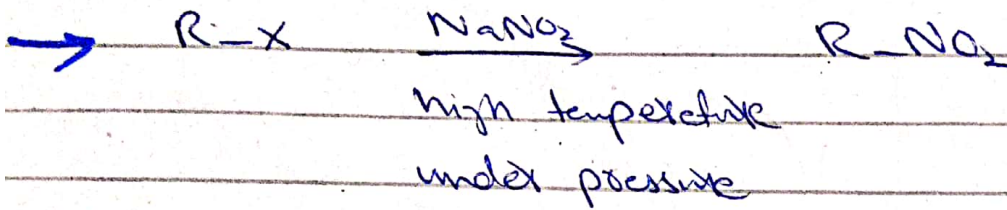 → R-X NaNO₂ → R-NO₂
high temperature
under pressure